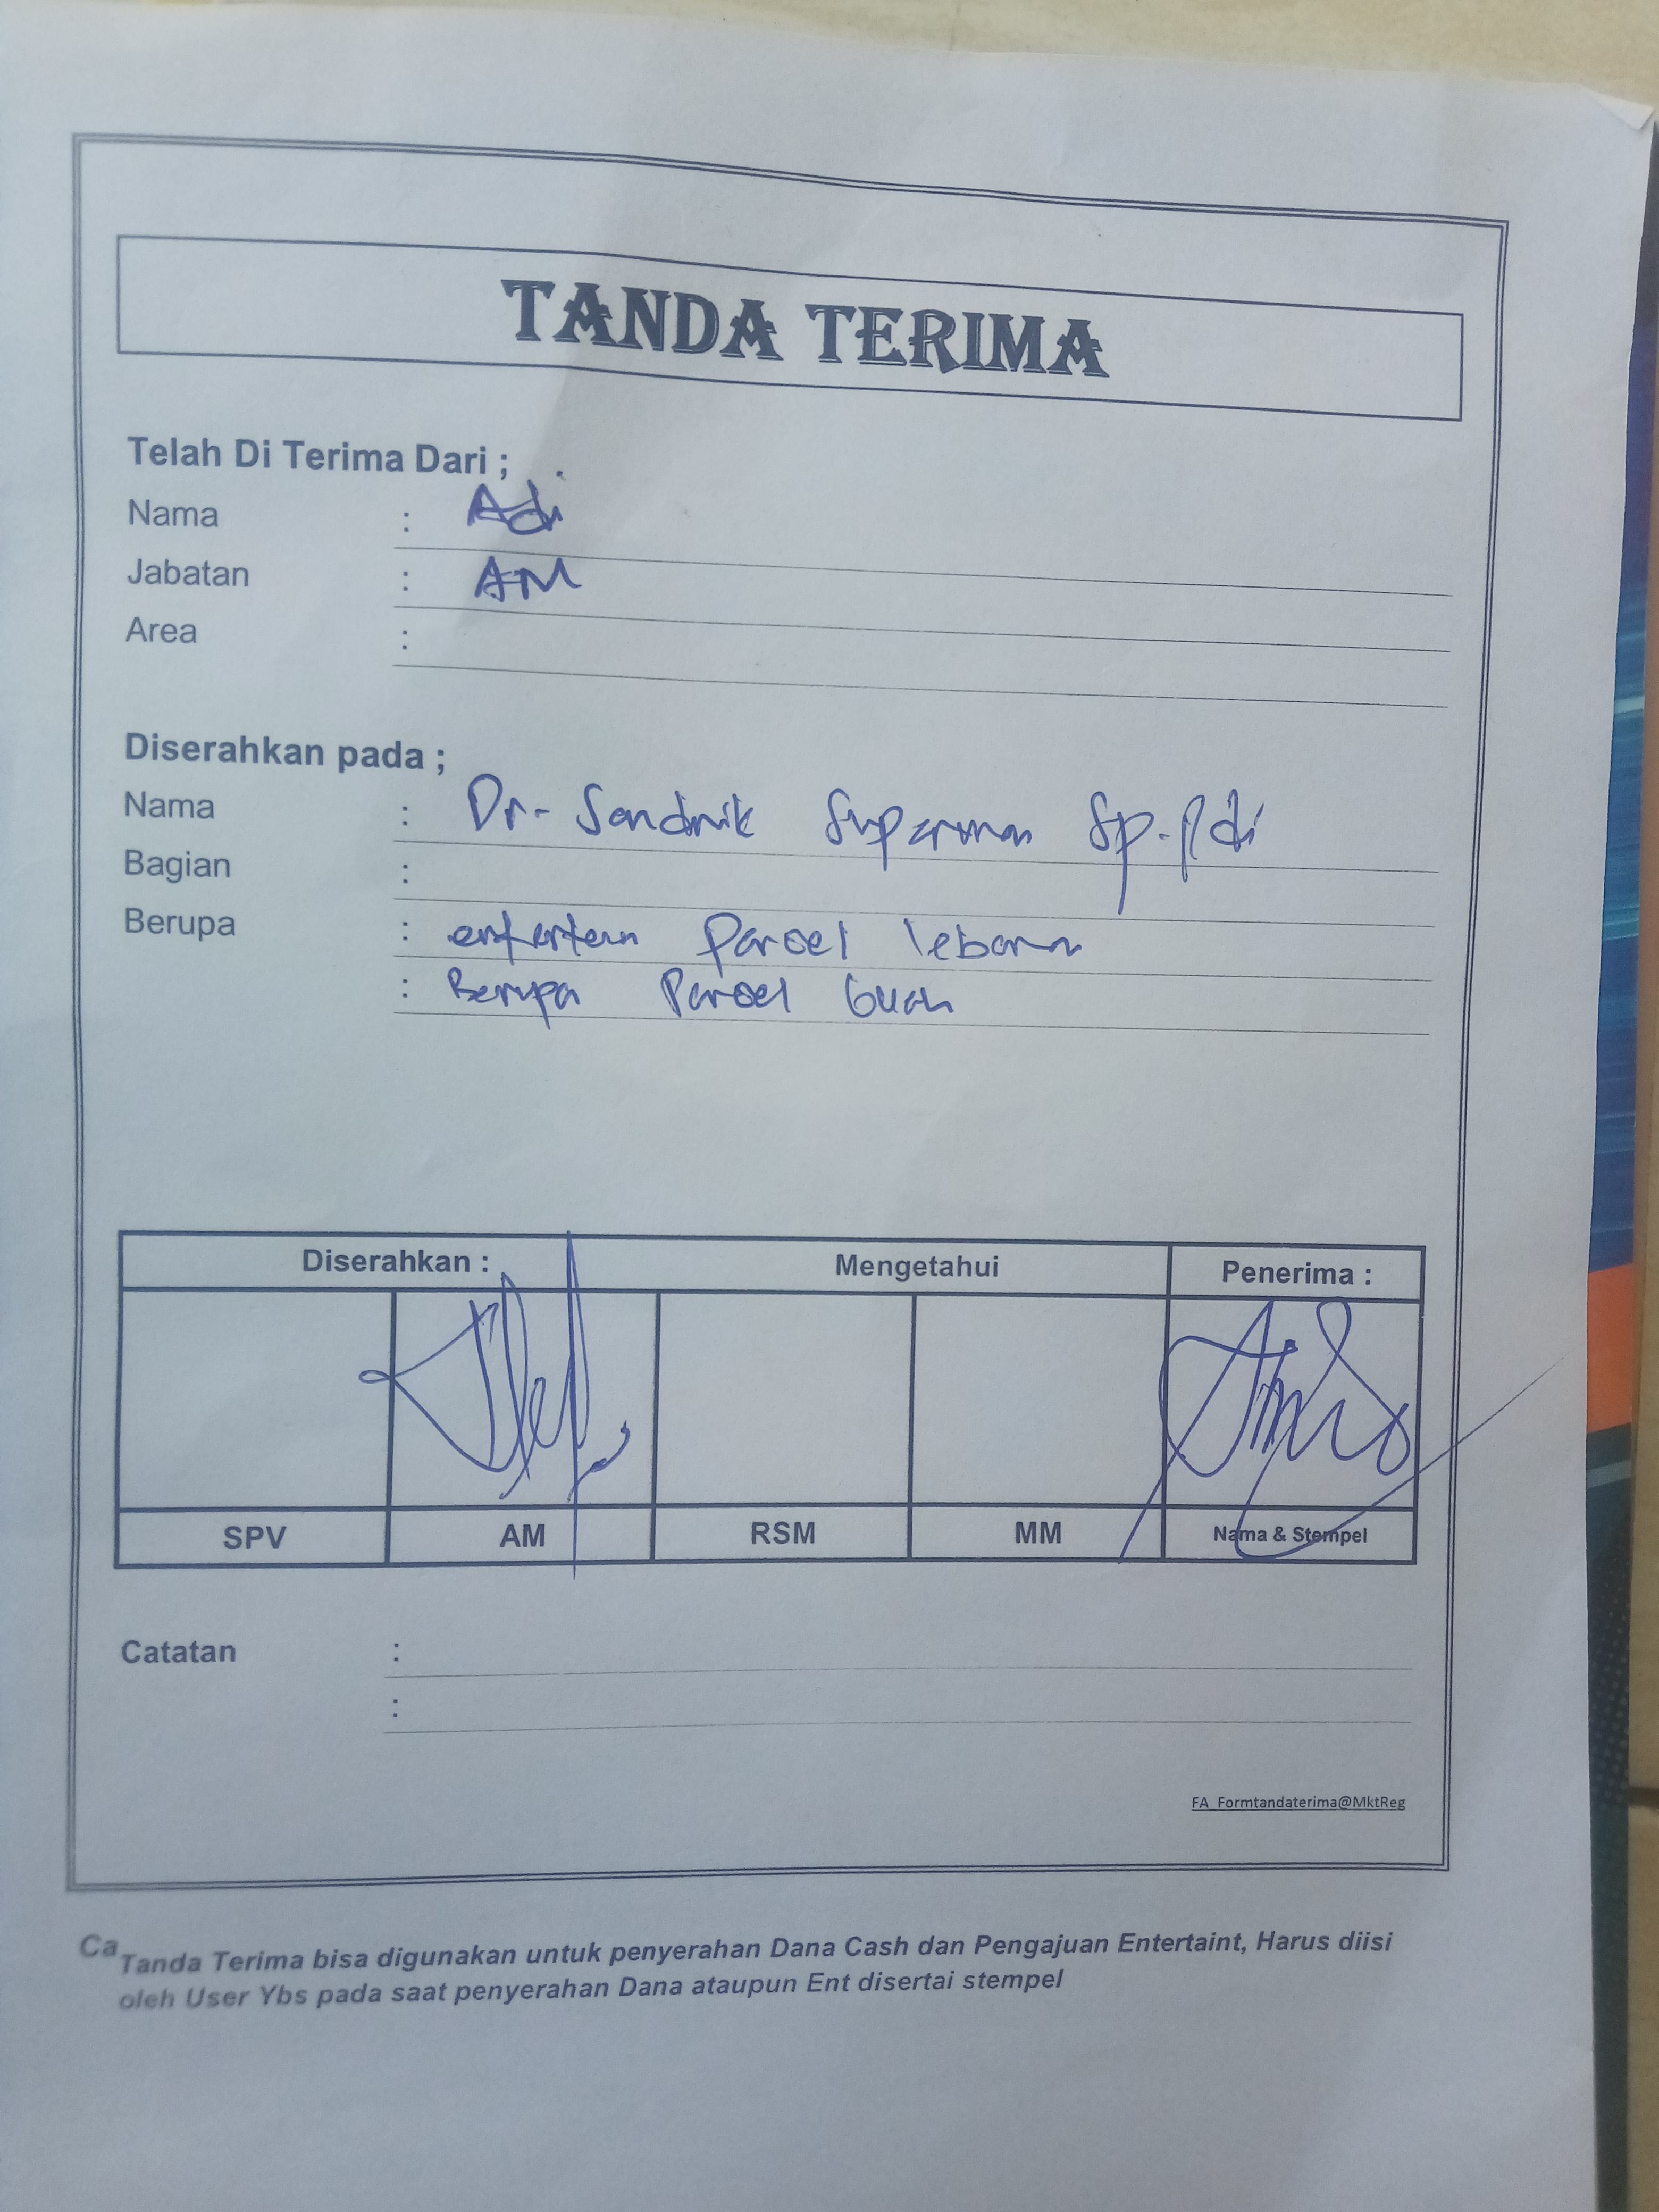 TANDA TERIMA
Telah Di Terima Dari ;
Nama : Adi
Jabatan : AM
Area :
Diserahkan pada ;
Nama : Dr- Sandrik Superman Sp.Pdi
Bagian :
Berupa : entertein Parcel lebaran
: Berupa Parcel buah
Diserahkan : Mengetahui Penerima :
SPV AM RSM MM Nama & Stempel
Catatan :
:
FA_Formtandaterima@MktReg
Ca
Tanda Terima bisa digunakan untuk penyerahan Dana Cash dan Pengajuan Entertaint, Harus diisi
oleh User Ybs pada saat penyerahan Dana ataupun Ent disertai stempel